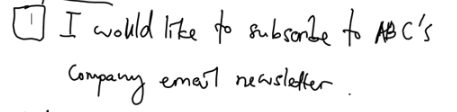 I would like to subscribe to ABC's
Company email newsletter.